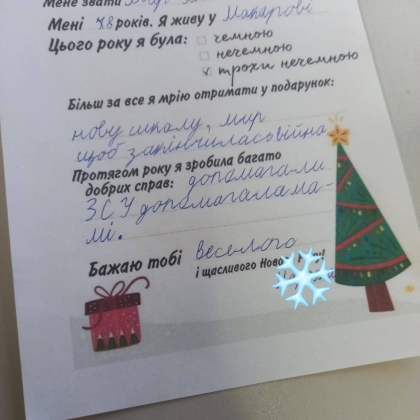 Мене звати
Мені років. Я живу у Макарові
Цього року я була: чемною
нечемною
трохи нечемною
Більш за все я мрію отримати у подарунок:
нову школу, мир
щоб закінчилась війна
Протягом року я зробила багато
добрих справ: допомагали
ЗСУ допомагала ма-
мі.
Бажаю тобі веселого
і щасливого